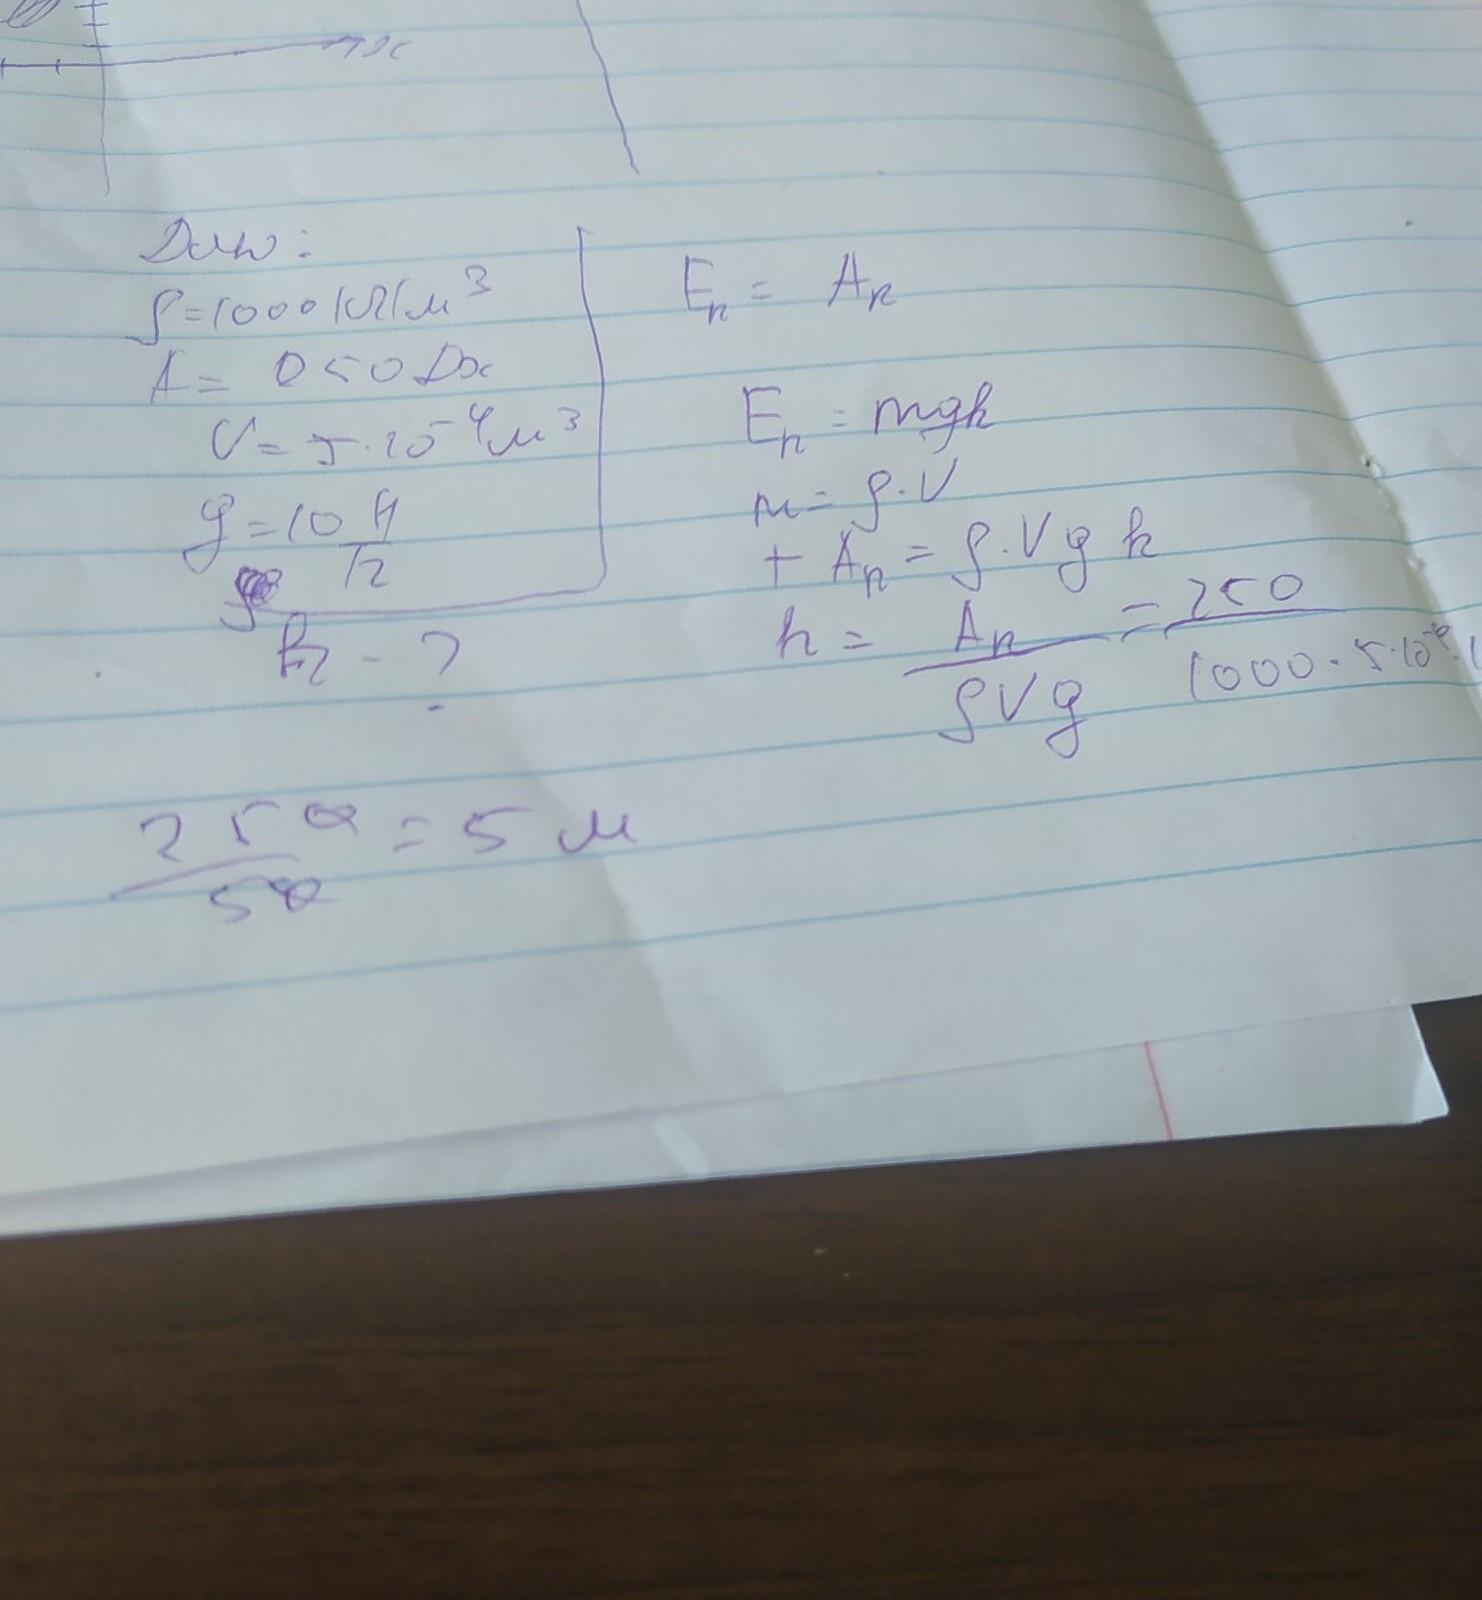 x
Дано:
ρ=1000 кг/м³
A= 250 Дж
V= 5·10⁻⁴ м³
g=10 Н/кг
h - ?
Eп = Aп
Eп = mgh
m = ρ·V
+ Aп = ρ·Vgh
h = Aп/ρVg = 250/1000·5·10
250/50 = 5 м